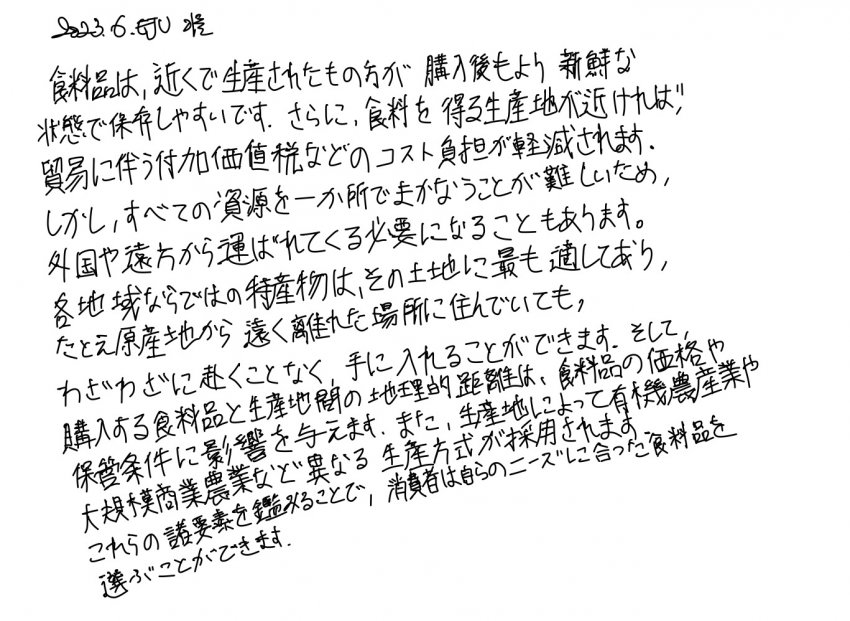 2023.6.EJU
食料品は,近くで生産されたもの方が 購入後もより 新鮮な
状態で保存しやすいです. さらに,食料を 得る生産地が近ければ,
貿易に伴う付加価値税などのコスト負担が軽減されます.
しかし,すべての資源を一か所でまかなうことが難しいため,
外国や遠方から運ばれてくる必要になることもあります。
各地域ならではの特産物は,その土地に最も適しており,
たとえ原産地から 遠く離れた場所に住んでいても,
わざわざに赴くことなく, 手に入れることができます. そして,
購入する食料品と生産地間の地理的距離は、食料品の価格や
保管条件に影響を与えます. また, 生産地によって有機農産業や
大規模商業農業など異なる 生産方式が採用されます.
これらの諸要素を鑑みることで, 消費者は自らのニーズに合った食料品を
選ぶことができます.